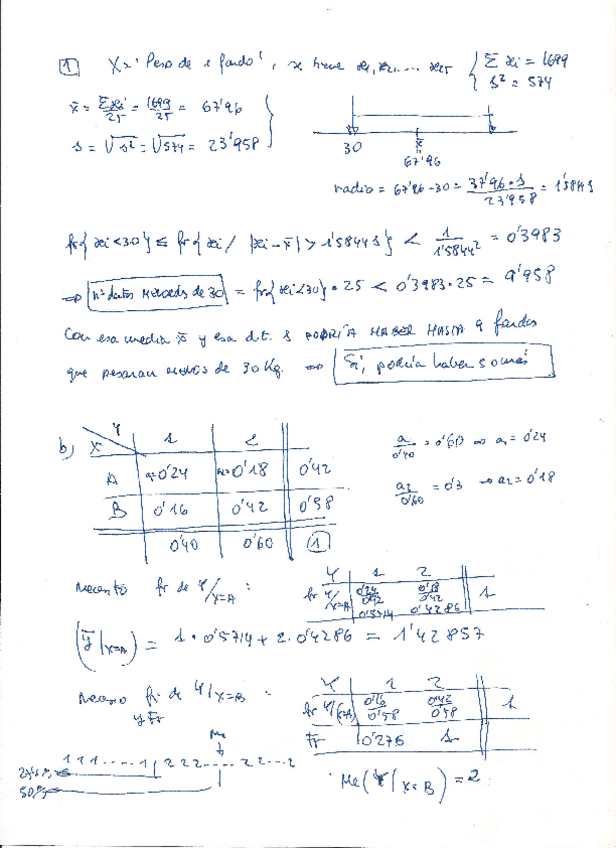 1 X = 'Peso de 1 fardo', se tiene x₁, x₂, ... x₂₅ { Σ xi = 1699
s² = 574
x̄ = Σxi/25 = 1699/25 = 67'96
s = √s² = √574 = 23'958
30 x̄ = 67'96
radio = 67'96 - 30 = 37'96 · s / 23'958 = 1'5844 s
fr{xi < 30} ≤ fr{xi / |xi - x̄| > 1'5844 s} < 1/1'5844² = 0'3983
⇒ nº datos menores de 30 = fr{xi < 30} · 25 < 0'3983 · 25 = 9'958
Con esa media x̄ y esa d.t. s PODRÍA HABER HASTA 9 fardos
que pesaran menos de 30 Kg. ⇒ Sí, podría haber 5 o más
b) X Y 1 2
A a₁=0'24 a₂=0'18 0'42
B 0'16 0'42 0'58
0'40 0'60 1
a₁/0'40 = 0'60 ⇒ a₁ = 0'24
a₂/0'60 = 0'3 → a₂ = 0'18
Necesito fr de Y/X=A :
Y 1 2
fr Y/X=A 0'24/0'42 0'18/0'42 1
0'5714 0'4286
(ȳ|X=A) = 1 · 0'5714 + 2 · 0'4286 = 1'42857
Necesito fr de Y/X=B :
y Fr
Y 1 2
0'16/0'58 0'42/0'58 1
Fr 0'276 1
Me
1 1 1 ..... 1 2 2 2 ..... 2 2 ... 2
50%
Me(Y/X=B) = 2